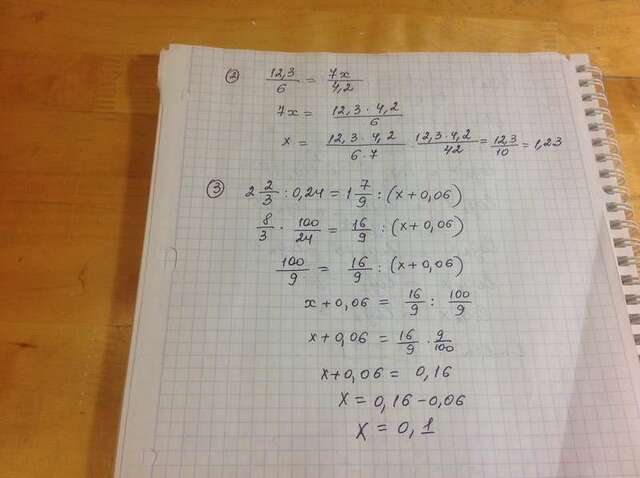 ② 12,3/6 = 7x/4,2
7x = 12,3 · 4,2/6
x = 12,3 · 4,2/6·7 12,3·4,2/42 = 12,3/10 = 1,23
③ 2 2/3 : 0,24 = 1 7/9 : (x+0,06)
8/3 · 100/24 = 16/9 : (x+0,06)
100/9 = 16/9 : (x+0,06)
x+0,06 = 16/9 : 100/9
x+0,06 = 16/9 · 9/100
x+0,06 = 0,16
x = 0,16-0,06
x = 0,1